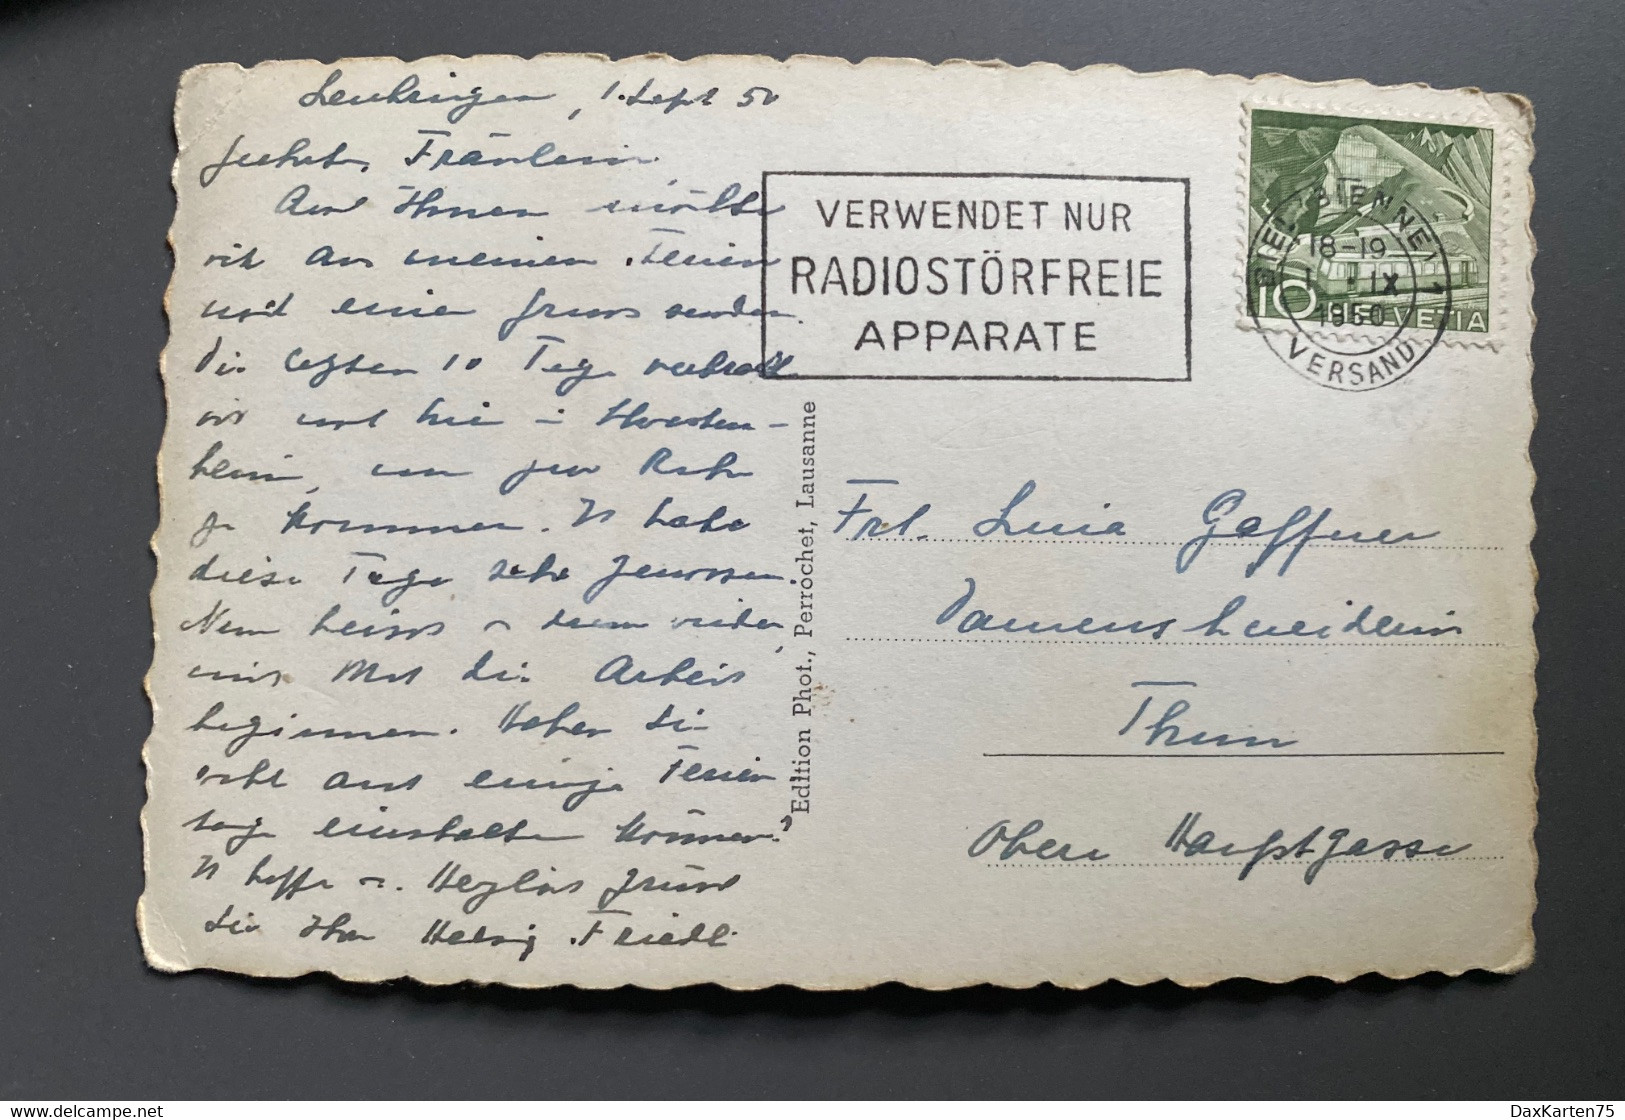 Leubringen, 1. Sept 50
Geehrtes Fräulein
Auch Ihnen möchte
ich aus meinen Ferien
einen Gruss senden.
Die letzten 10 Tage verbracht
ich noch hier i
heim, um zur Ruhe
zu kommen. Ich habe
diese Tage sehr genossen.
Nun heisst es dann wieder
mit Mut die Arbeit
beginnen. Haben Sie
wohl auch einige Ferien
tage einschalten können?
Ich hoffe es. Herzlich grüsst
Sie Ihre Hedwig Friedli
VERWENDET NUR
RADIOSTÖRFREIE
APPARATE
BIEL-BIENNE 1
18-19
1. IX
1950
VERSAND
10 HELVETIA
Edition Phot., Perrochet, Lausanne
Frl. Luisa Gaffner
Damenschneiderin
Thun
Obere Hauptgasse
DaxKarten75